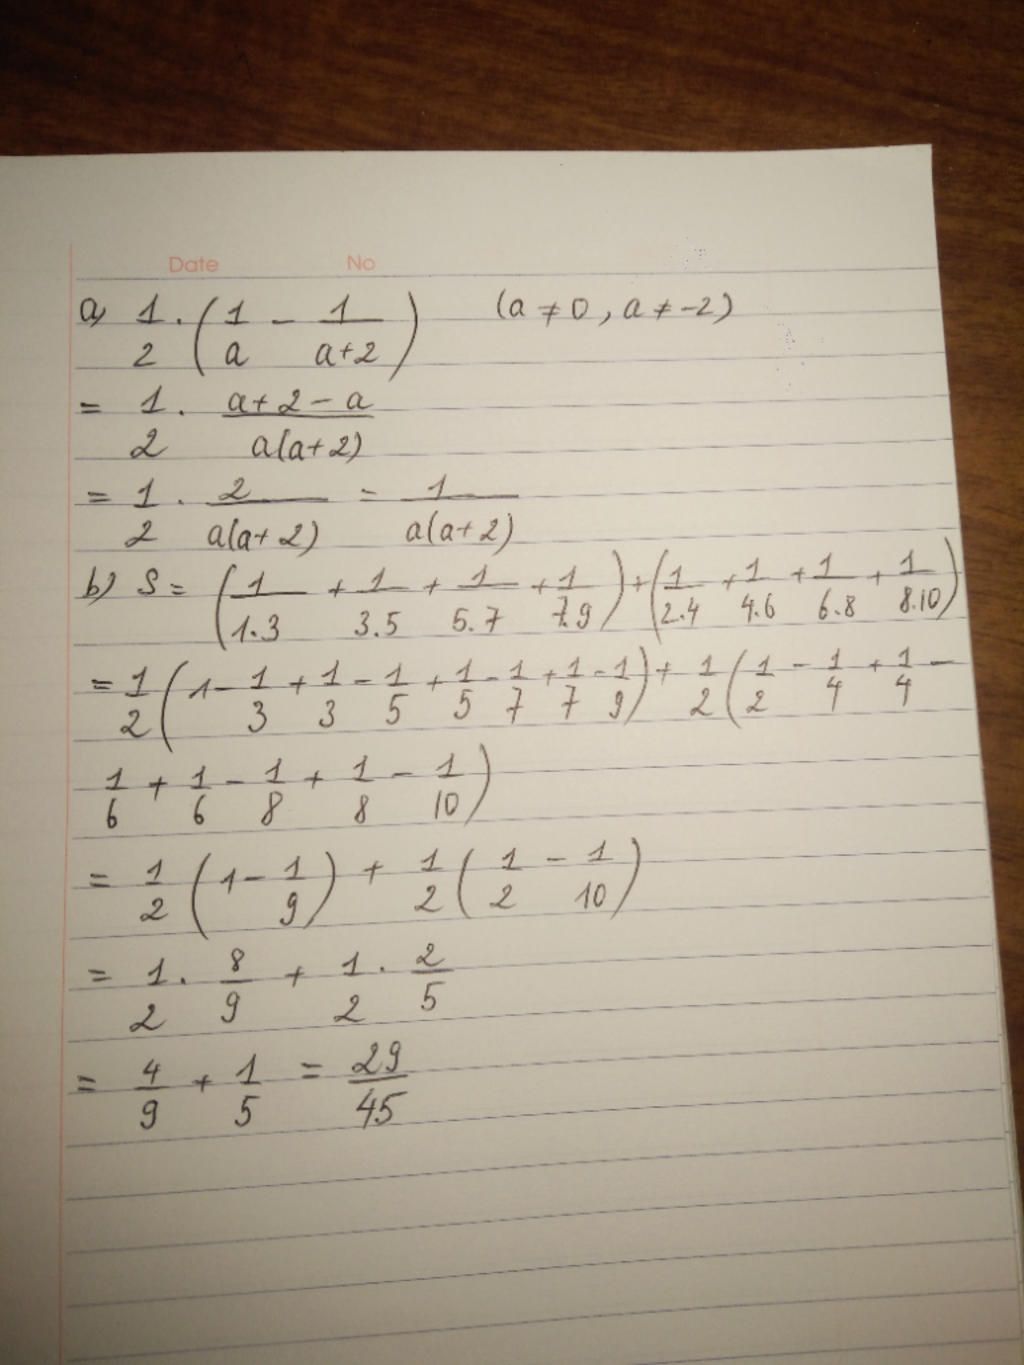 Date No
a) 1/2 . (1/a - 1/(a+2)) (a ≠ 0, a ≠ -2)
= 1/2 . (a+2-a)/(a(a+2))
= 1/2 . 2/(a(a+2)) = 1/(a(a+2))
b) S = (1/1.3 + 1/3.5 + 1/5.7 + 1/7.9) + (1/2.4 + 1/4.6 + 1/6.8 + 1/8.10)
= 1/2 (1 - 1/3 + 1/3 - 1/5 + 1/5 - 1/7 + 1/7 - 1/9) + 1/2 (1/2 - 1/4 + 1/4 -
1/6 + 1/6 - 1/8 + 1/8 - 1/10)
= 1/2 (1 - 1/9) + 1/2 (1/2 - 1/10)
= 1/2 . 8/9 + 1/2 . 2/5
= 4/9 + 1/5 = 29/45